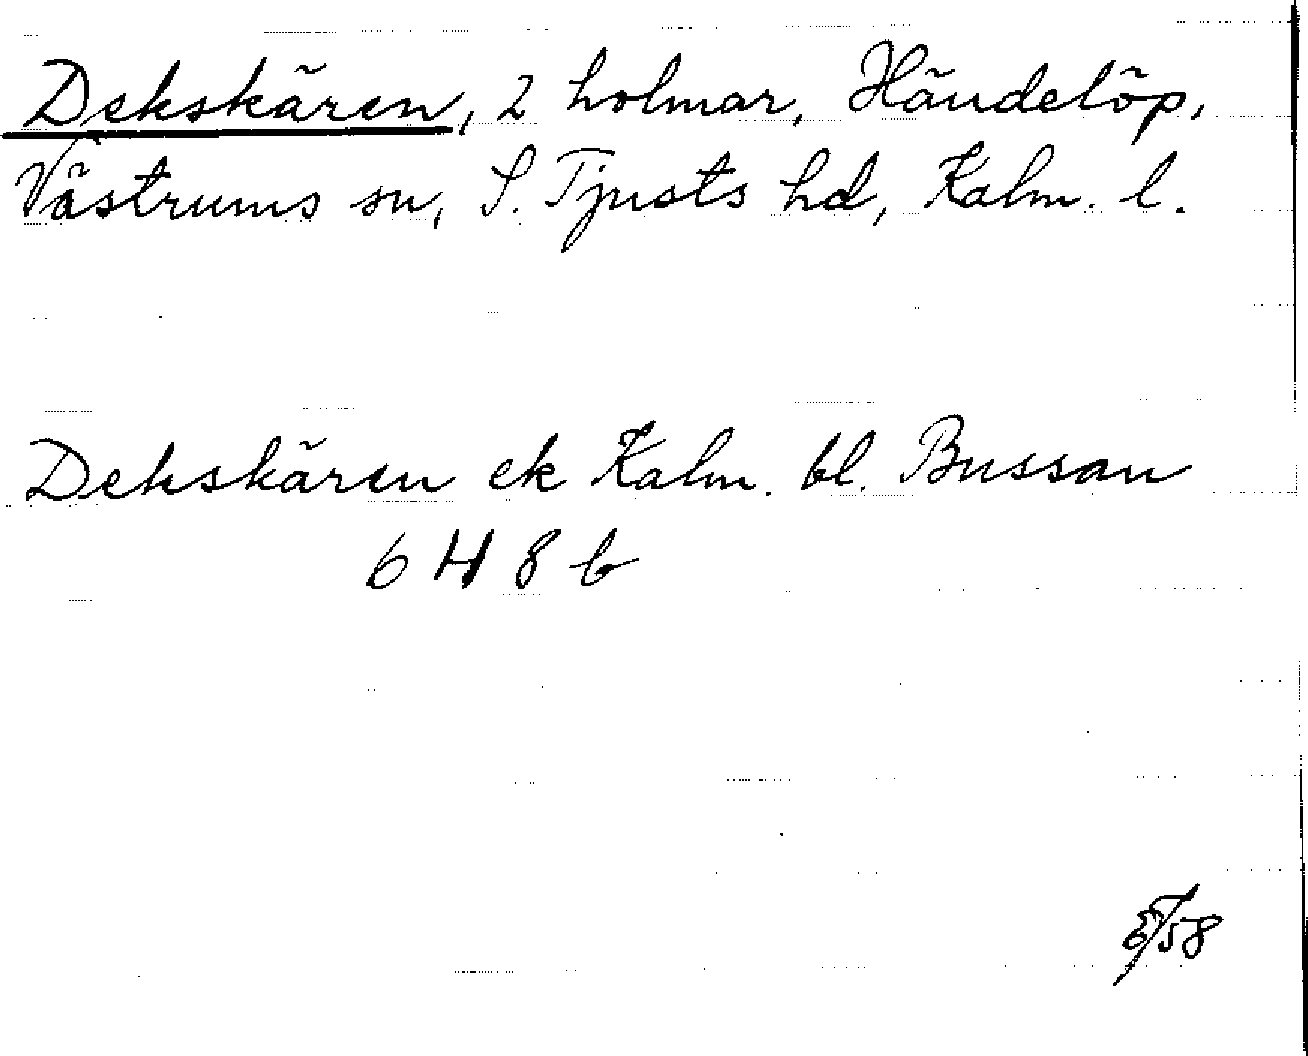 Dekskären, 2 holmar, Händelöp,
Västrums sn, S. Tjusts hd, Kalm. l.
Dekskären ek Kalm. bl. Bussan
6 H 8 b